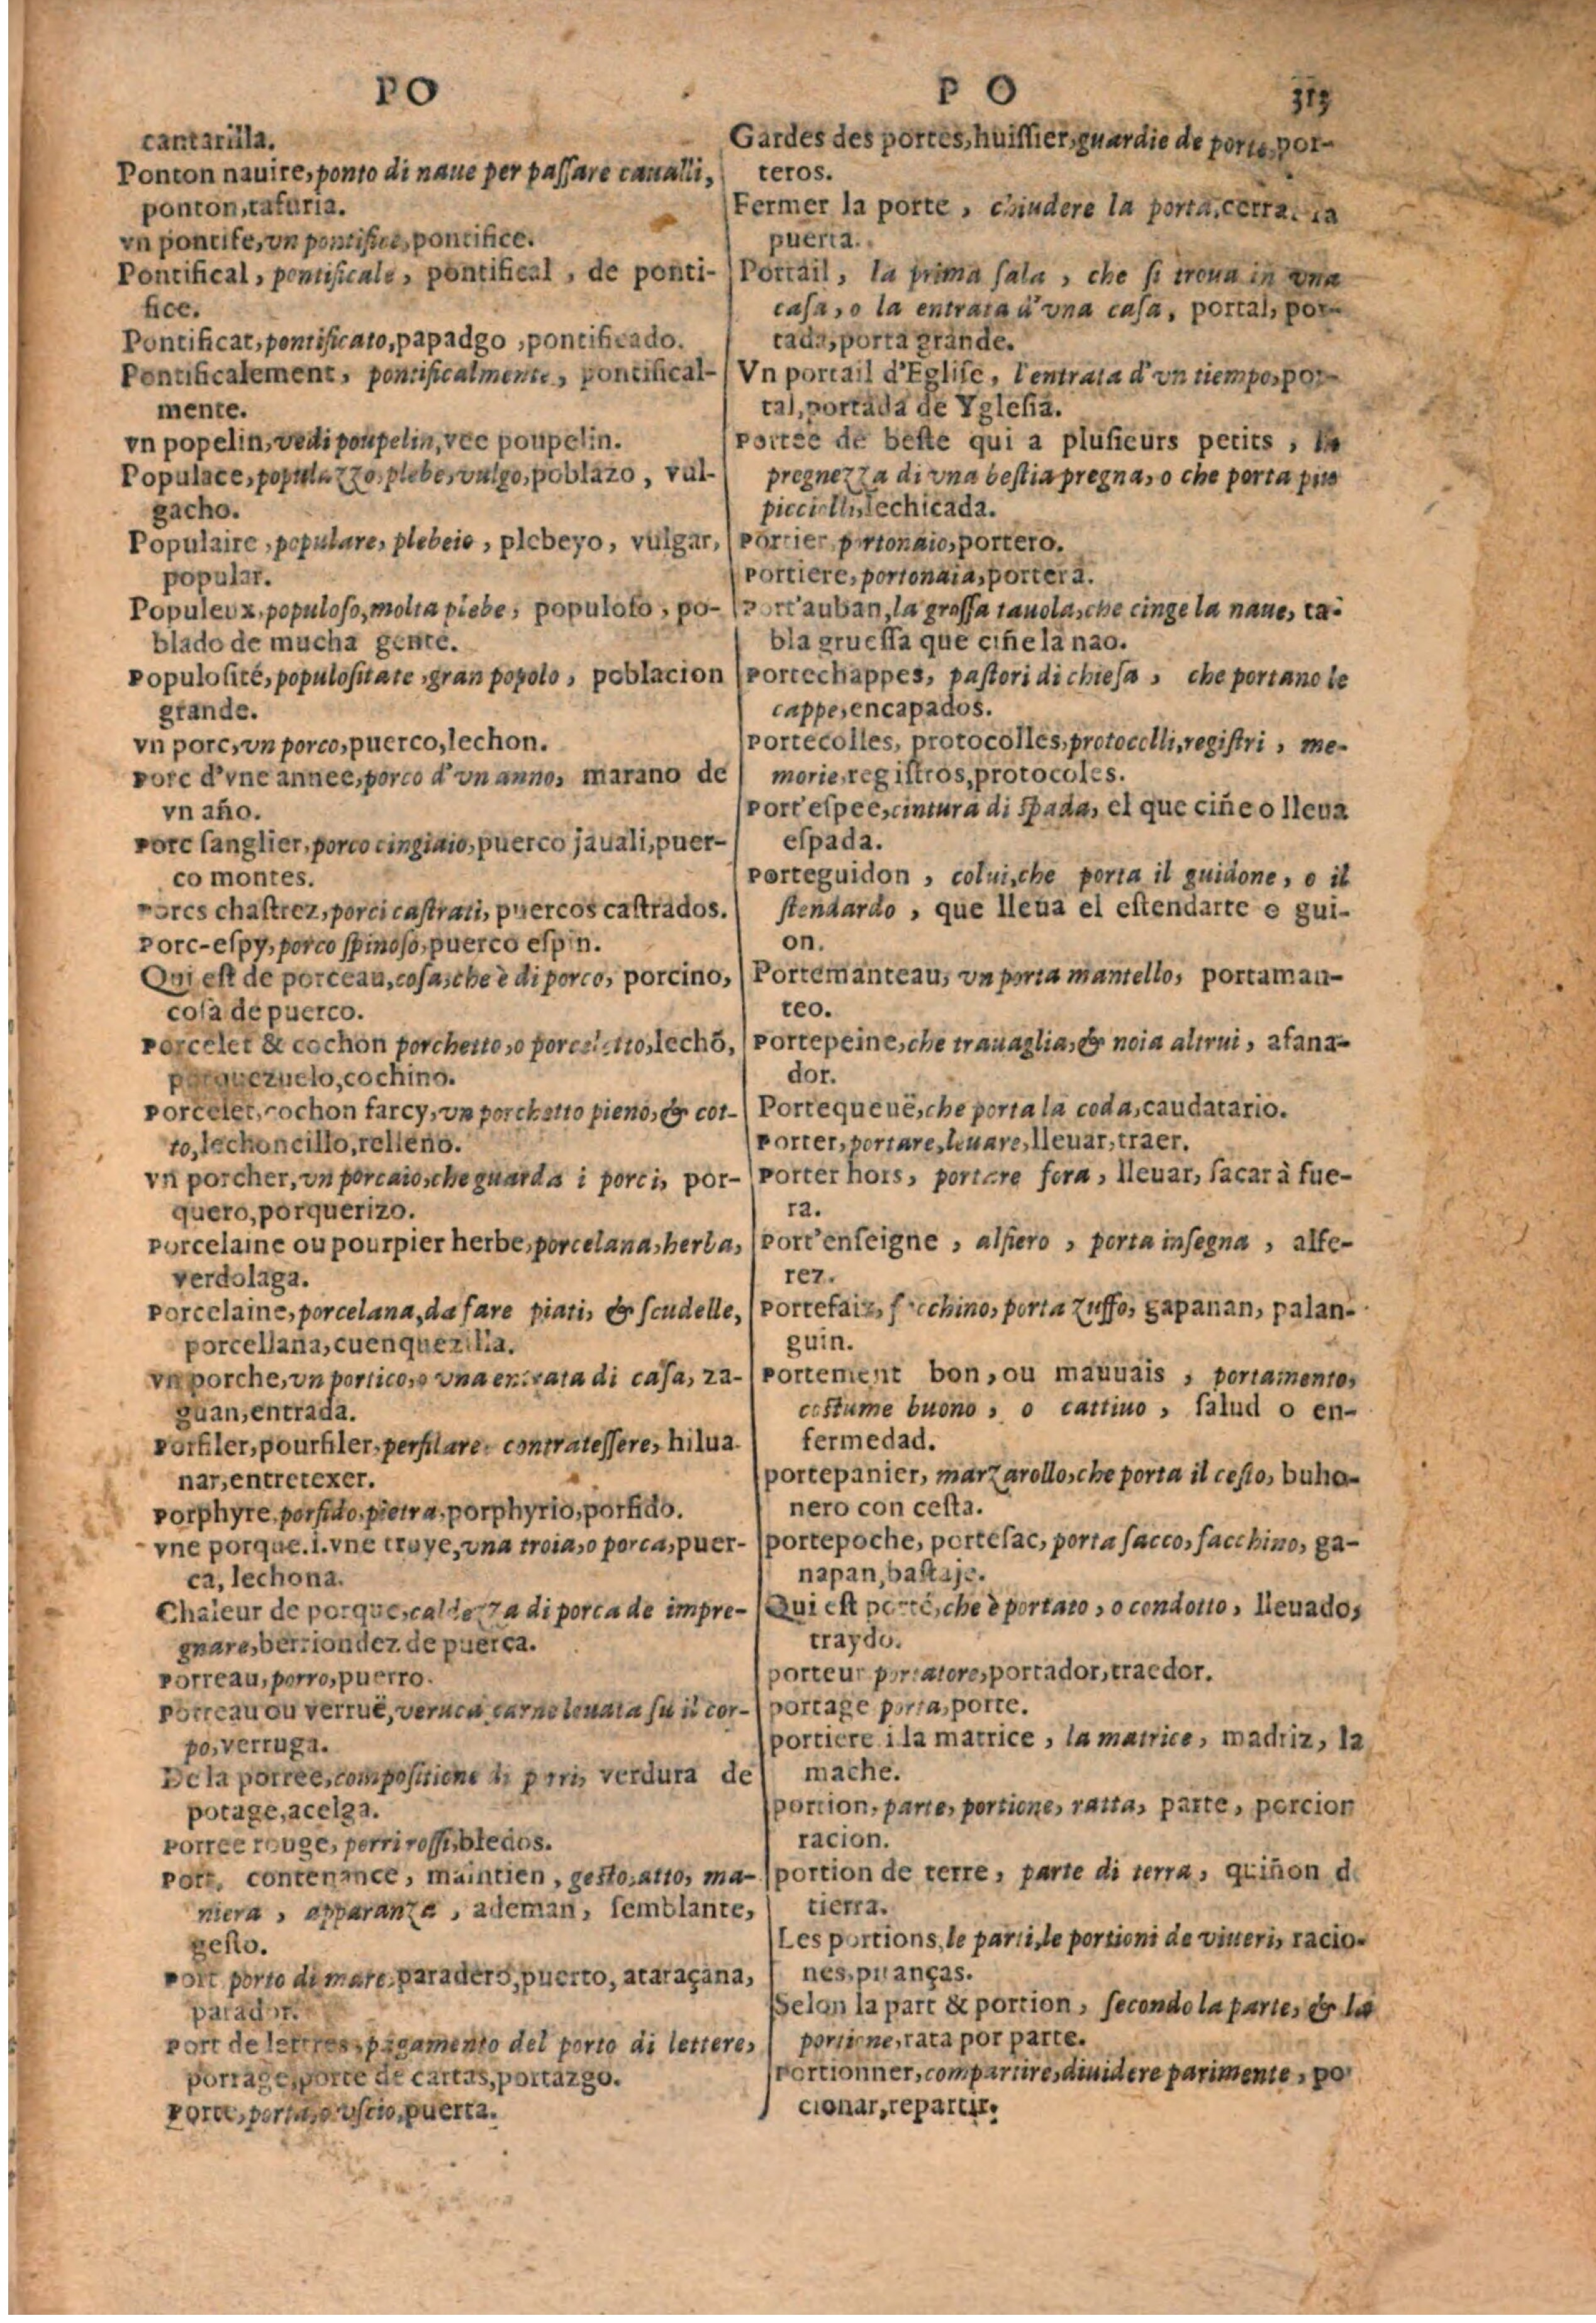 PO
cantarilla.
Ponton nauire, ponto di naue per paſſare caualli,
ponton, tafuria.
vn pontife, vn pontifice, pontifice.
Pontifical, pontificale, pontifical, de ponti-
fice.
Pontificat, pontificato, papadgo, pontificado.
Pontificalement, pontificalmente, pontifical-
mente.
vn popelin, vedi poupelin, vee poupelin.
Populace, populazzo, plebe, vulgo, poblazo, vul-
gacho.
Populaire, populare, plebeio, plebeyo, vulgar,
popular.
Populeux, populoſo, molta plebe, populoſo, po-
blado de mucha gente.
Populoſité, populoſitate, gran popolo, poblacion
grande.
vn porc, vn porco, puerco, lechon.
Porc d'vne annee, porco d'vn anno, marano de
vn año.
Porc ſanglier, porco cingiaio, puerco jauali, puer-
co montes.
Porcs chaſtrez, porci caſtrati, puercos caſtrados.
Porc-eſpy, porco ſpinoſo, puerco eſpin.
Qui eſt de porceau, coſa, che è di porco, porcino,
coſa de puerco.
Porcelet & cochon porchetto, o porceletto, lechõ,
porquezuelo, cochino.
Porcelet, cochon farcy, vn porchetto pieno, & cot-
to, lechoncillo, relleno.
vn porcher, vn porcaio, che guarda i porci, por-
quero, porquerizo.
Porcelaine ou pourpier herbe, porcelana, herba,
verdolaga.
Porcelaine, porcelana, da fare piati, & ſcudelle,
porcellana, cuenquezilla.
vn porche, vn portico, o vna entrata di caſa, za-
guan, entrada.
Porfiler, pourfiler, perfilare, contrateſſere, hilua
nar, entretexer.
Porphyre, porfido, pietra, porphyrio, porfido.
vne porque. i. vne truye, vna troia, o porca, puer-
ca, lechona.
Chaleur de porque, caldezza di porca de impre-
gnare, berriondez de puerca.
Porreau, porro, puerro.
Porreau ou verruë, veruca carne leuata ſu il cor-
po, verruga.
De la porree, compoſitione di porri, verdura de
potage, acelga.
Porree rouge, porri roſſi, bledos.
Port, contenance, maintien, geſto, atto, ma-
niera, apparanza, ademan, ſemblante,
geſto.
Port porto di mare, paradero, puerto, ataraçana,
parador.
Port de lettres, pagamento del porto di lettere,
portage, porte de cartas, portazgo.
Porte, porta, o vſcio, puerta.
P O
319
Gardes des portes, huiſſier, guardie de porte, por-
teros.
Fermer la porte, chiudere la porta, cerra la
puerta.
Portail, la prima ſala, che ſi troua in vna
caſa, o la entrata d'vna caſa, portal, por-
tada, porta grande.
Vn portail d'Egliſe, l'entrata d'vn tiempo, por-
tal, portada de Ygleſia.
Portee de beſte qui a pluſieurs petits, la
pregnezza di vna beſtia pregna, o che porta piu
picciolli, lechicada.
Portier portonaio, portero.
Portiere, portonaia, portera.
Port'auban, la groſſa tauola, che cinge la naue, ta-
bla grueſſa que ciñe la nao.
Portechappes, paſtori di chieſa, che portano le
cappe, encapados.
Portecolles, protocolles, protocolli, regiſtri, me-
morie, regiſtros, protocoles.
Port'eſpee, cintura di ſpada, el que ciñe o lleua
eſpada.
Porteguidon, colui, che porta il guidone, o il
ſtendardo, que lleua el eſtendarte o gui-
on.
Portemanteau, vn porta mantello, portaman-
teo.
Portepeine, che trauaglia, & noia altrui, afana-
dor.
Portequeuë, che porta la coda, caudatario.
Porter, portare, leuare, lleuar, traer.
Porter hors, portare fora, lleuar, ſacar à fue-
ra.
Port'enſeigne, alfiero, porta inſegna, alfe-
rez.
Portefaiz, facchino, porta zuffo, gapanan, palan-
guin.
Portement bon, ou mauuais, portamento,
coſtume buono, o cattiuo, ſalud o en-
fermedad.
portepanier, marzarollo, che porta il ceſto, buho-
nero con ceſta.
portepoche, porteſac, porta ſacco, facchino, ga-
napan, baſtaje.
Qui eſt porté, che è portato, o condotto, lleuado,
traydo.
porteur portatore, portador, traedor.
portage porta, porte.
portiere i la matrice, la matrice, madriz, la
mache.
portion, parte, portione, ratta, parte, porcion
racion.
portion de terre, parte di terra, quiñon d
tierra.
Les portions, le parti, le portioni de viueri, racio-
nes, pitanças.
Selon la part & portion, ſecondo la parte, & la
portione, rata por parte.
Portionner, compartire, diuidere parimente, po
cionar, repartir.